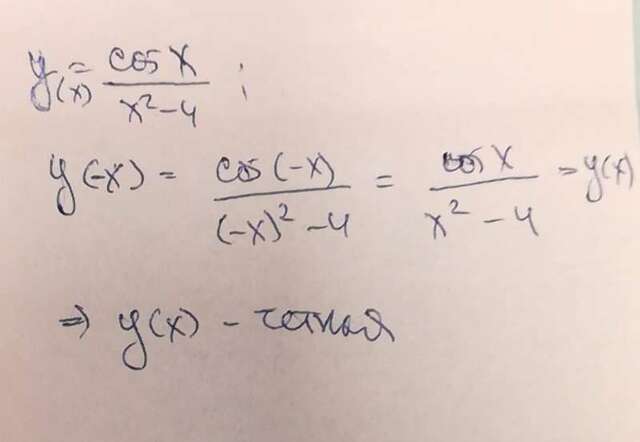 y(x) = cos x / x² - 4 ;
y(-x) = cos(-x) / (-x)² - 4 = cos x / x² - 4 = y(x)
⇒ y(x) - четная